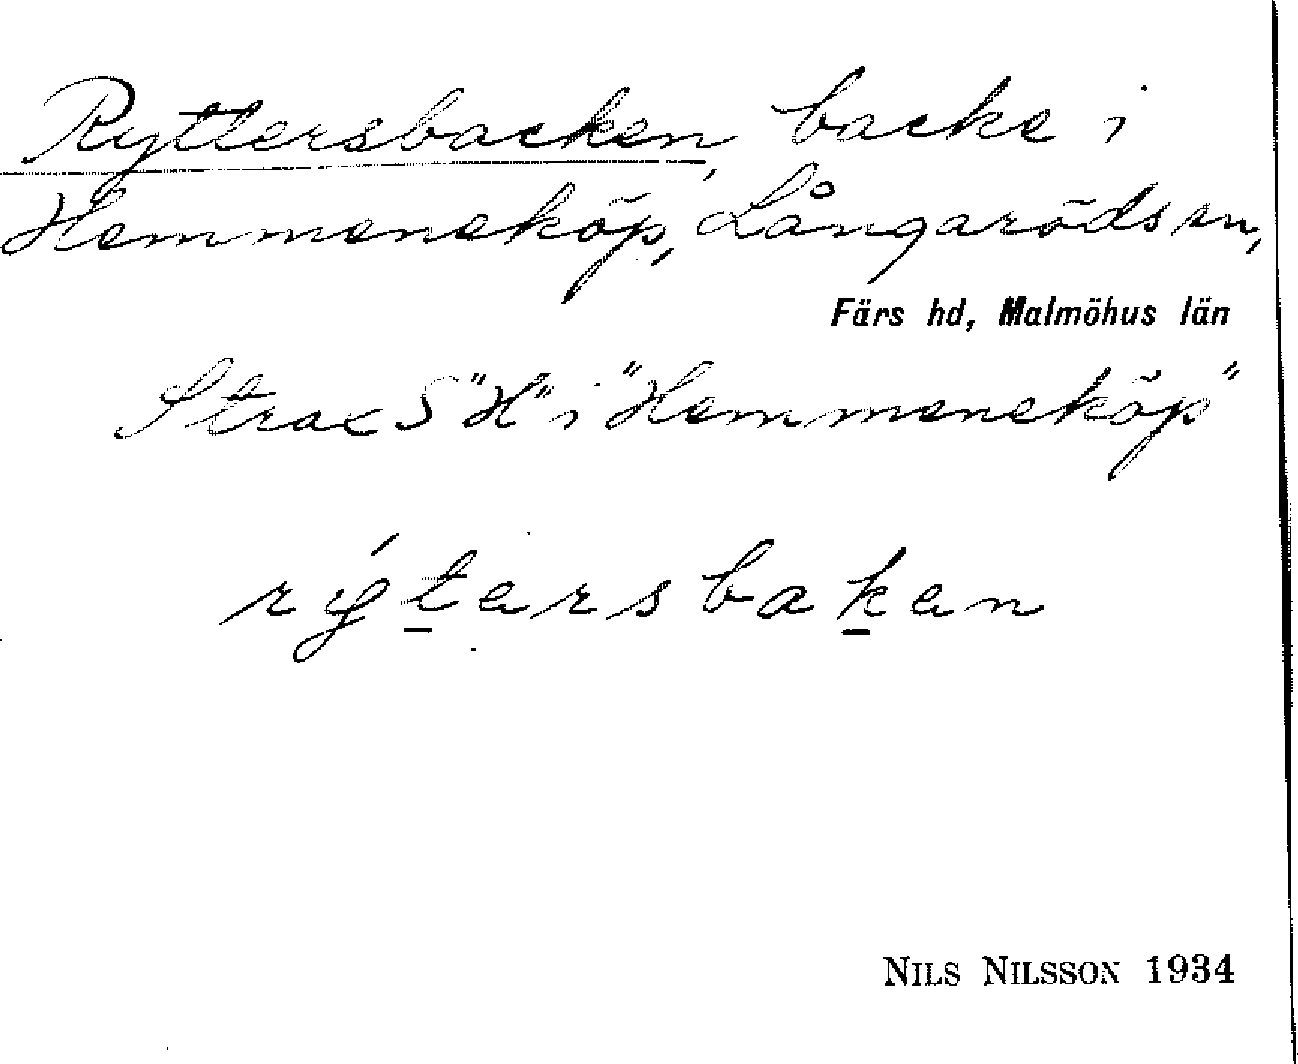 Ryttersbacken, backe i
Hemmeneköp, Långarödssn,
Färs hd, Malmöhus län
Strax S "H" i "Hemmeneköp"
rýtarsbakan
NILS NILSSON 1934